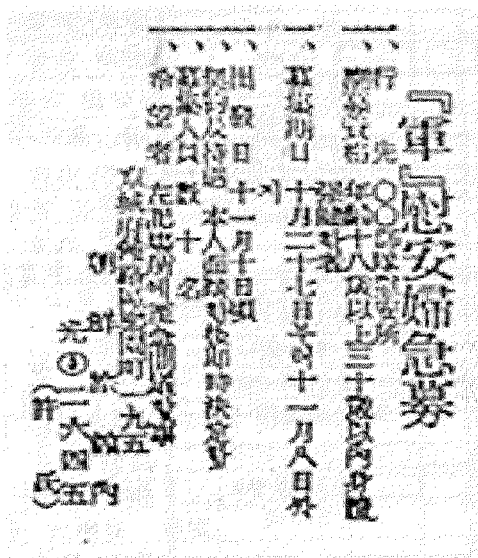 『軍』慰安婦急募
一、行先 ○○部隊慰安所
一、應募資格 年齡十八歲以上三十歲以內身體强健者
一、募集期日 十月二十七日부터十一月八日까지
一、出發日 十一月十日頃
一、契約及待遇 本人面談後 決定함
一、募集人員 數十名
一、希望者 左記場所에至急問議
京城府鍾路區樂園町一九五
朝鮮旅館內
光③二六四五
(許氏)